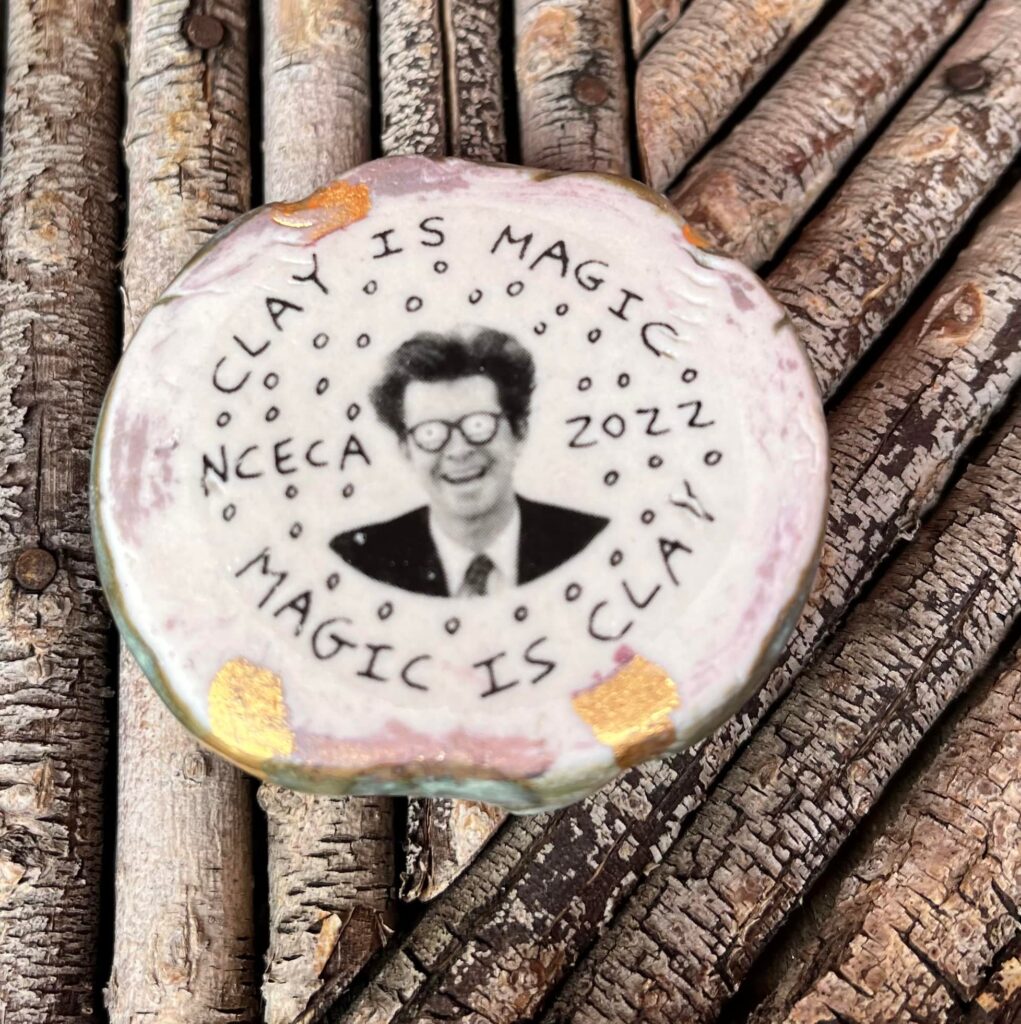 CLAY IS MAGIC
NCECA 2022
MAGIC IS CLAY